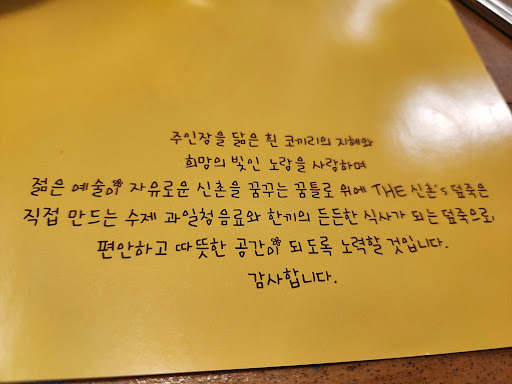 주인장을 닮은 흰 코끼리의 지혜와
희망의 빛인 노랑을 사랑하며
젊은 예술이 자유로운 신촌을 꿈꾸는 꿈틀로 위에 THE 신촌's 덮죽은
직접 만드는 수제 과일청음료와 한끼의 든든한 식사가 되는 덮죽으로,
편안하고 따뜻한 공간이 되도록 노력할 것입니다.
감사합니다.